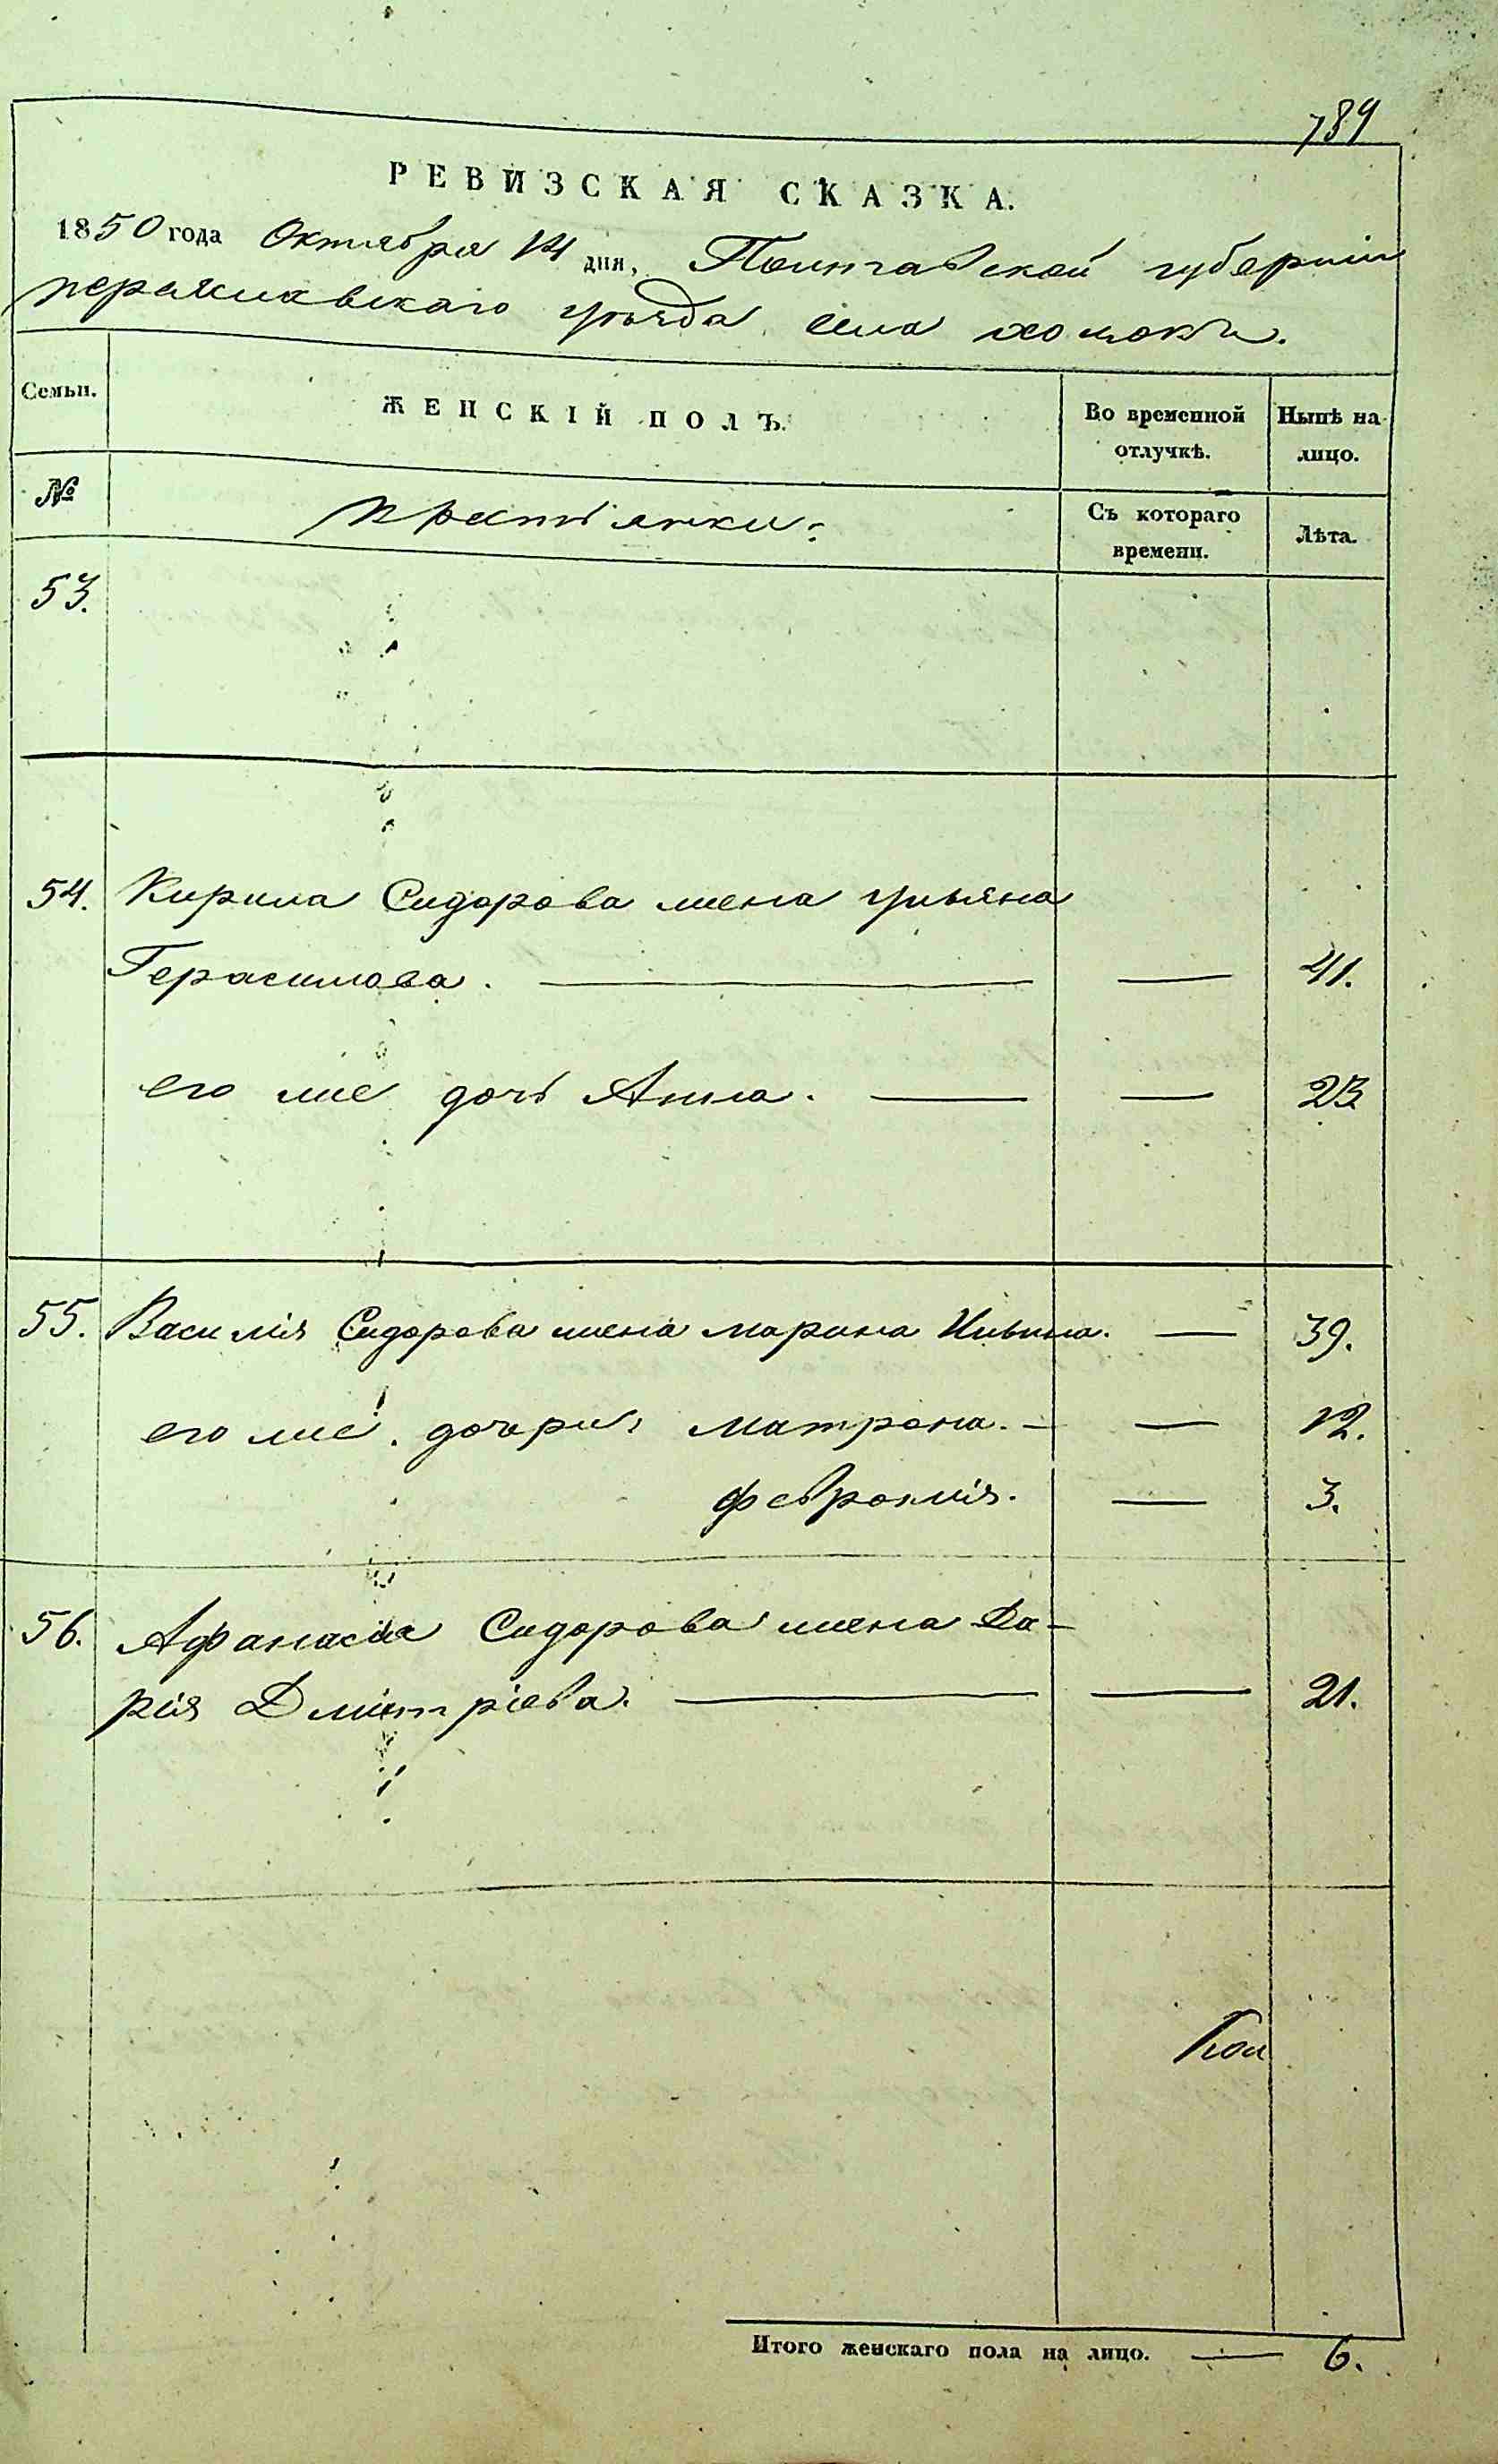 789
РЕВИЗСКАЯ СКАЗКА.
1850 года Октября 14 дня, Полтавской губерніи
переяславскаго уѣзда села хоцокъ.
Семьи. ЖЕНСКІЙ ПОЛЪ. Во временной отлучкѣ. Нынѣ на лицо.
№ крестьянки: Съ котораго времени. Лѣта.
53.
54. Кирила Сидорова жена Ульяна
Герасимова. — — 41.
его же дочь Анна. — — 23
55. Василія Сидорова жена марина Ильина. — 39.
его же дочери: матрона. — — 12.
феβронія. — 3.
56. Афанасія Сидорова жена Да-
рія Дмитріева. — — 21.
Итого женскаго пола на лицо. — 6.